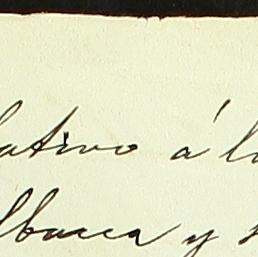 lativo á l
lbacea y